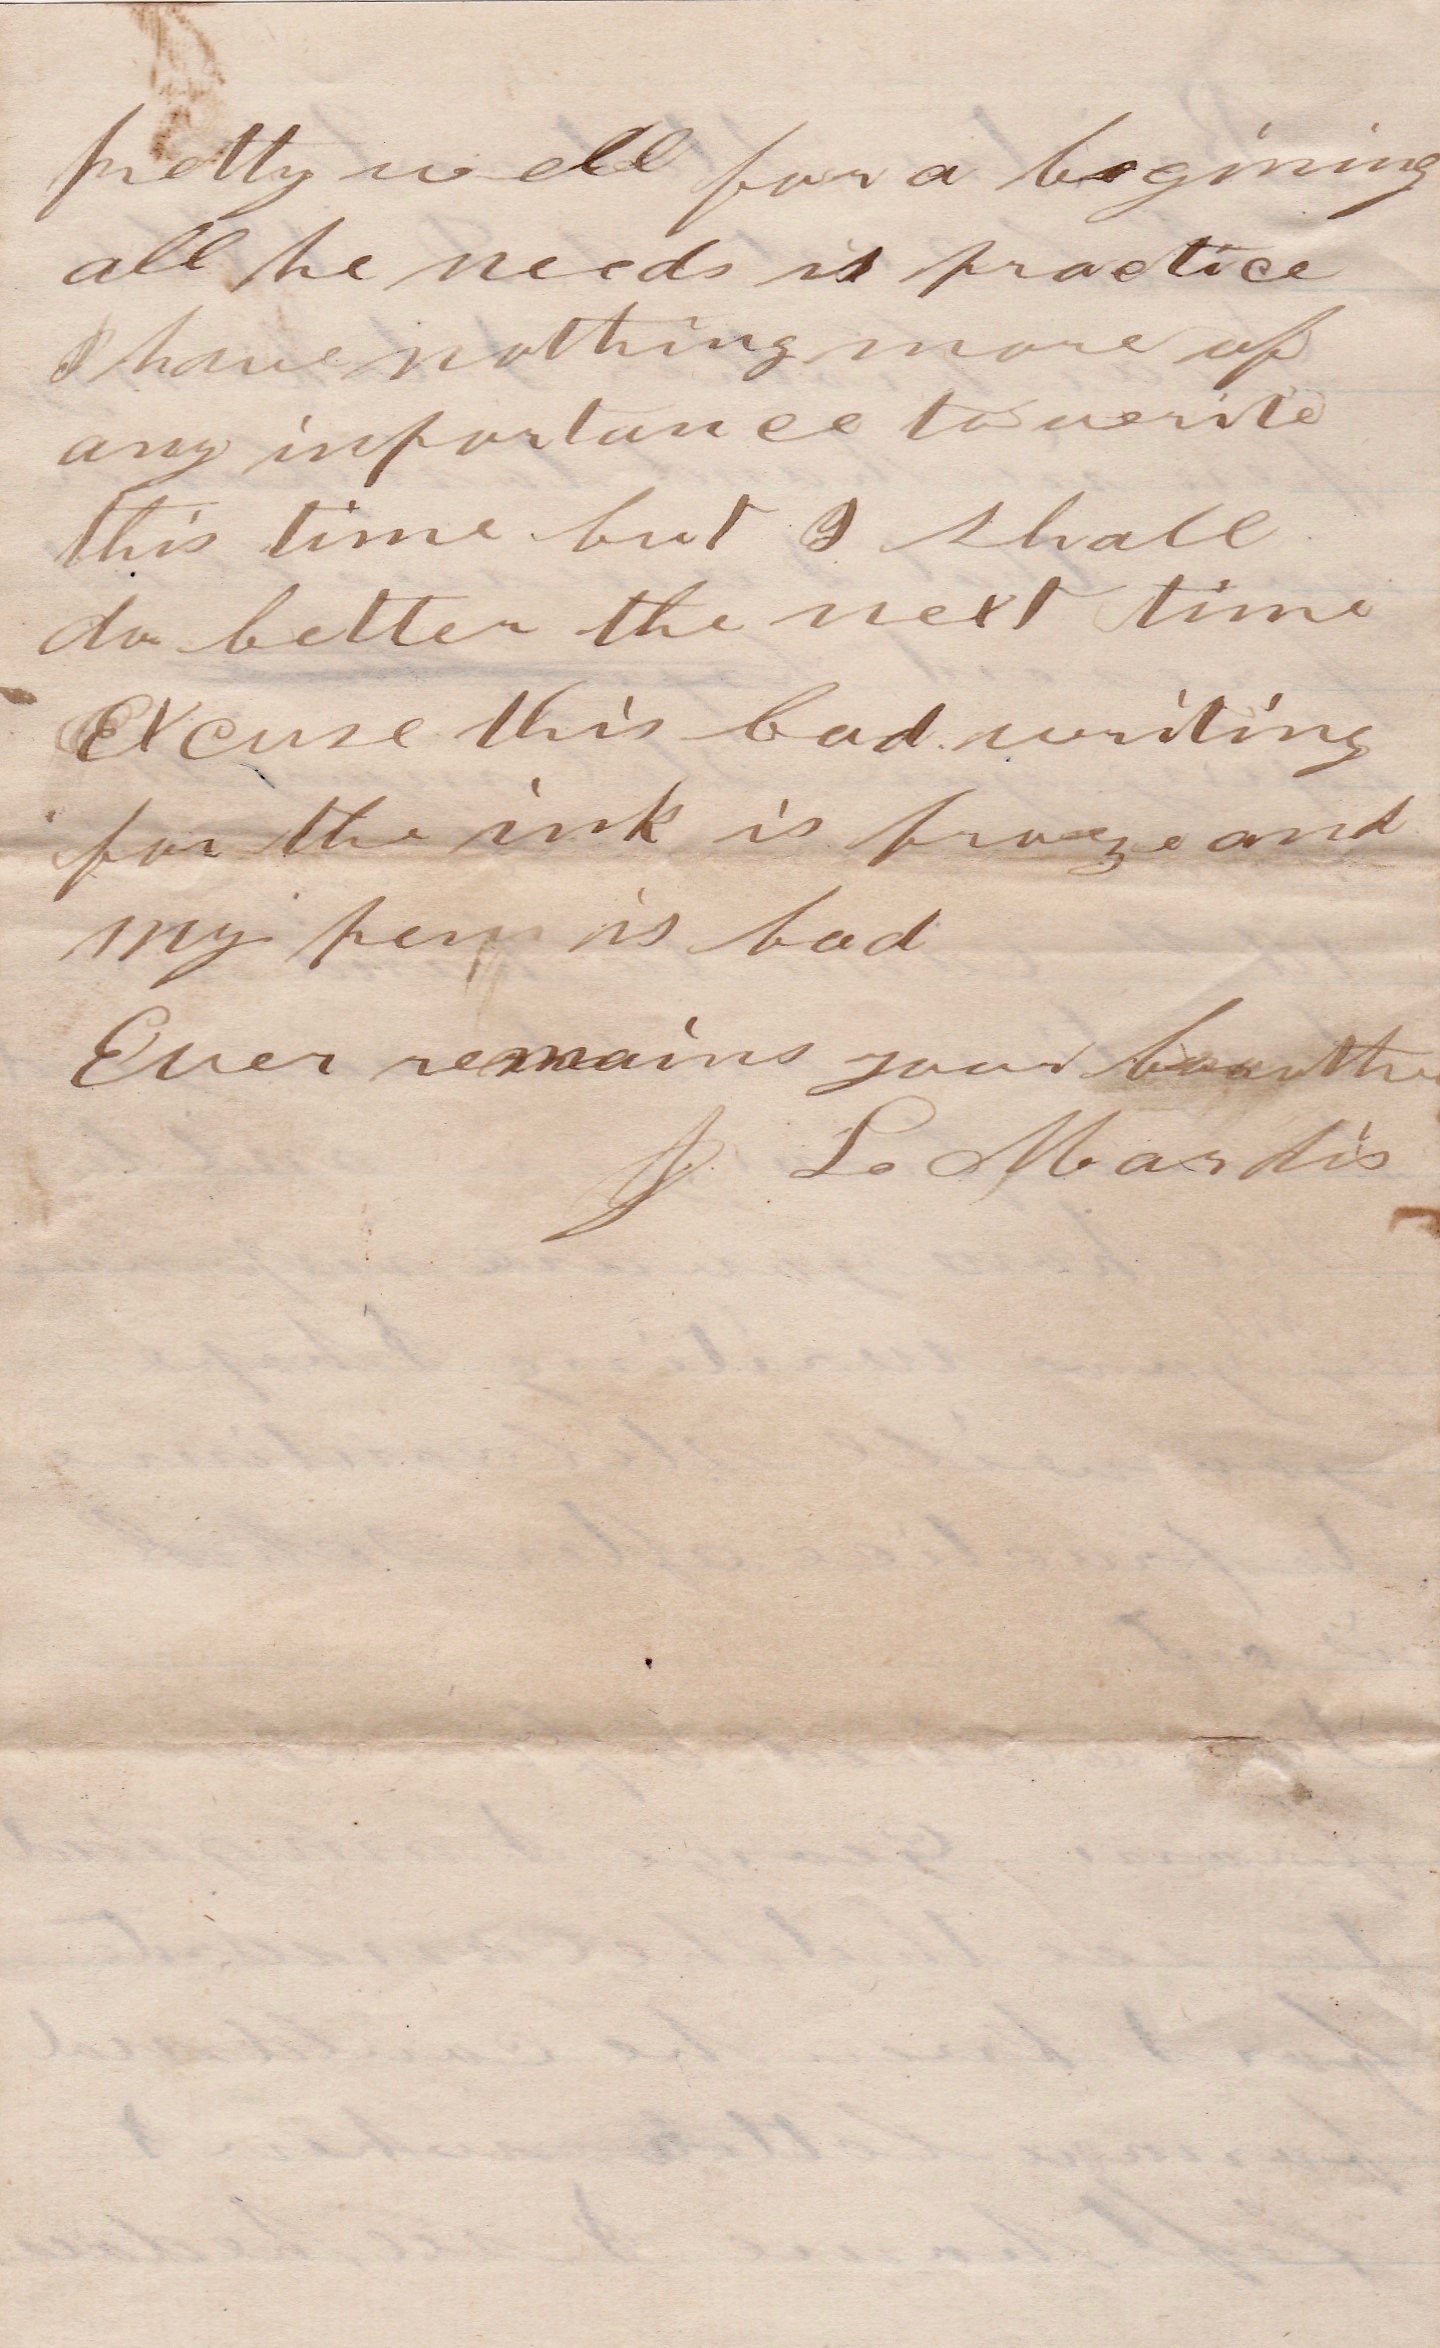 pretty well for a begining
all he needs is practice
I have nothing more of
any inportance to write
this time but I shall
do better the next time
Excuse this bad writing
for the ink is froze and
my pen is bad
Ever remains your
J L Mardis